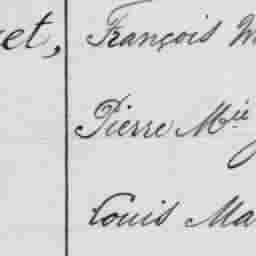 et, François M
Pierre Mie
Louis Ma